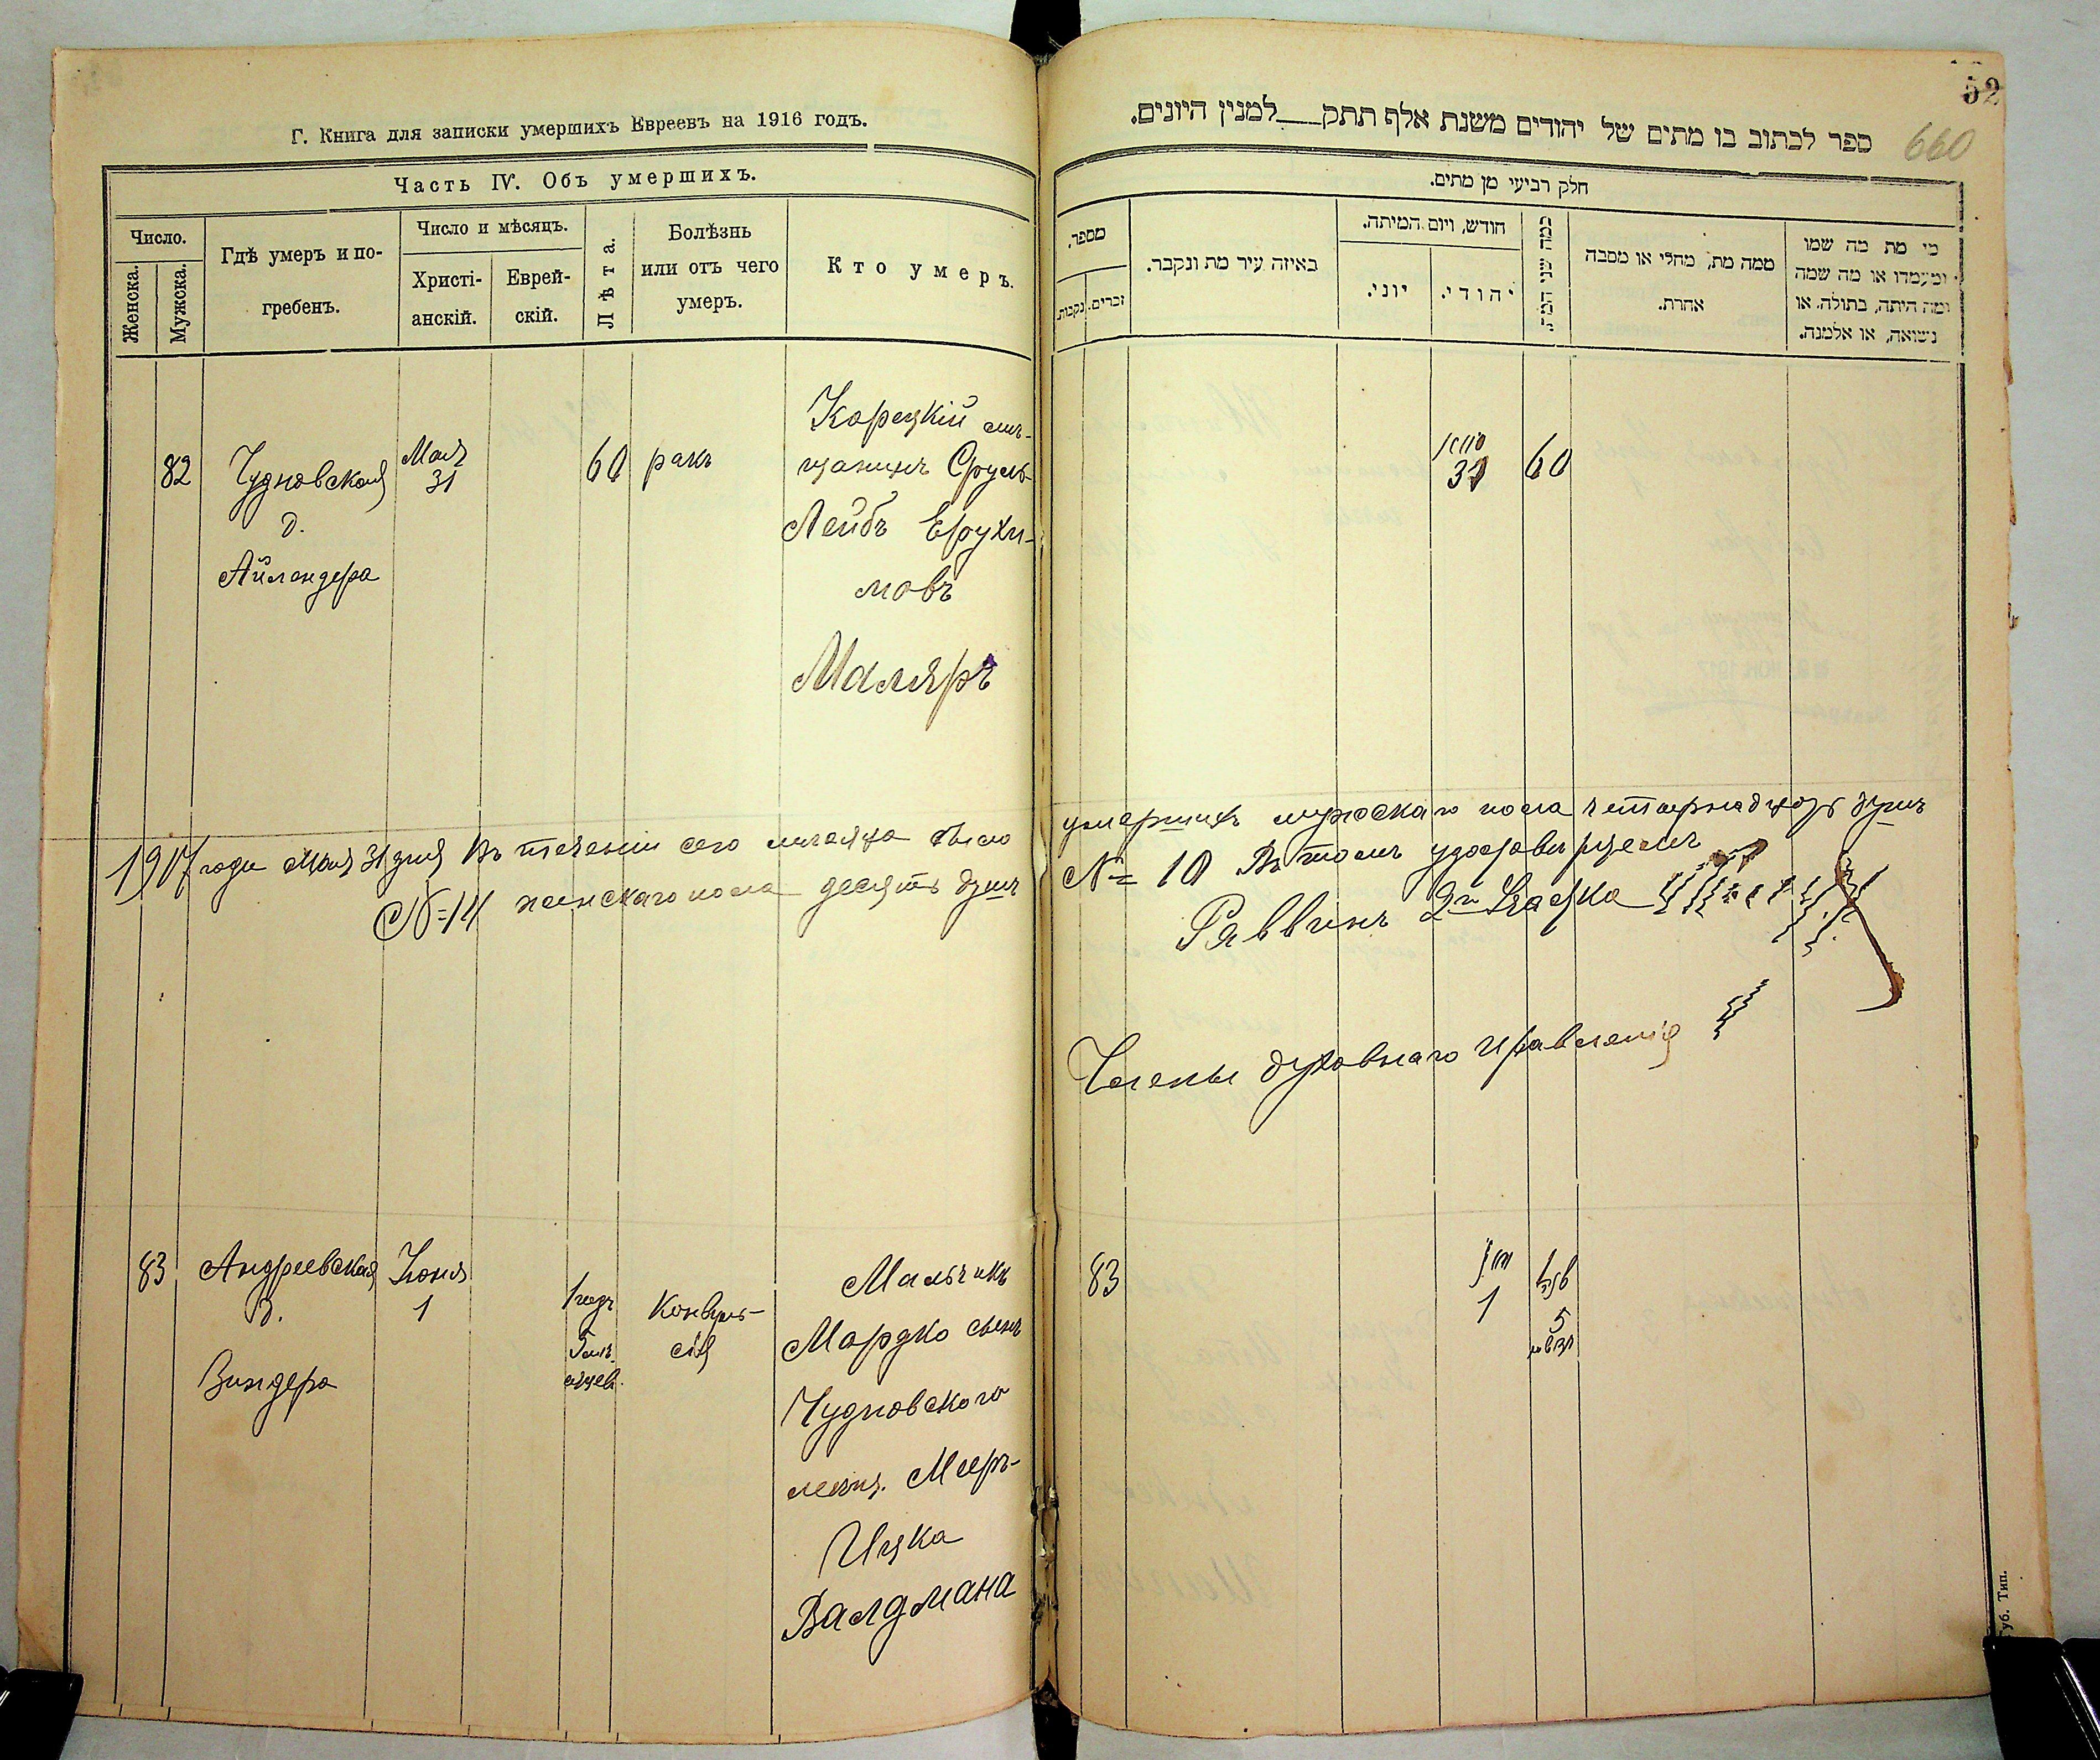 Г. Книга для записки умершихъ Евреевъ на 1916 годъ.
Часть IV. Объ умершихъ.
Число.
Женска.
Мужска.
Гдѣ умеръ и по-
гребенъ.
Число и мѣсяцъ.
Христі-
анскій.
Еврей-
скій.
Лѣта.
Болѣзнь
или отъ чего
умеръ.
Кто умеръ.
82
Чудновская
д.
Айлендера
Мая
31
60
ракъ
Корецкій мѣ-
щанинъ Сруль-
Лейбъ Ерухи-
мовъ
Маляръ
1917 года Мая 31 дня Въ теченіи сего мѣсяца было
№ 14 женскаго пола десять душъ
83
Андреевская
д.
Зиндера
Іюня
1
1 годъ
5 мѣ-
сяцев.
Конвуль-
сія
Мальчикъ
Мордко сынъ
Чудновского
мѣщ. Меер-
Ицка
Валдмана
52
660
ספר לכתוב בו מתים של יהודים משנת אלף תתק___למנין היונים.
חלק רביעי מן מתים.
מספר.
נקבות.
זכרים.
באיזה עיר מת ונקבר.
חודש, ויום המיתה.
יוני.
יהודי.
כמה שני המת.
ממה מת, מחלי או מסבה
אחרת.
מי מת מה שמו
ומעמדו או מה שמה
ומה היתה, בתולה. או
נשואה, או אלמנה.
31
60
умершихъ мужскаго пола четырнадцать душъ
№ 10 Въ томъ удостовѣряемъ
Раввинъ 2го
Члены духовнаго правленія
83
1
5
Губ. Тип.